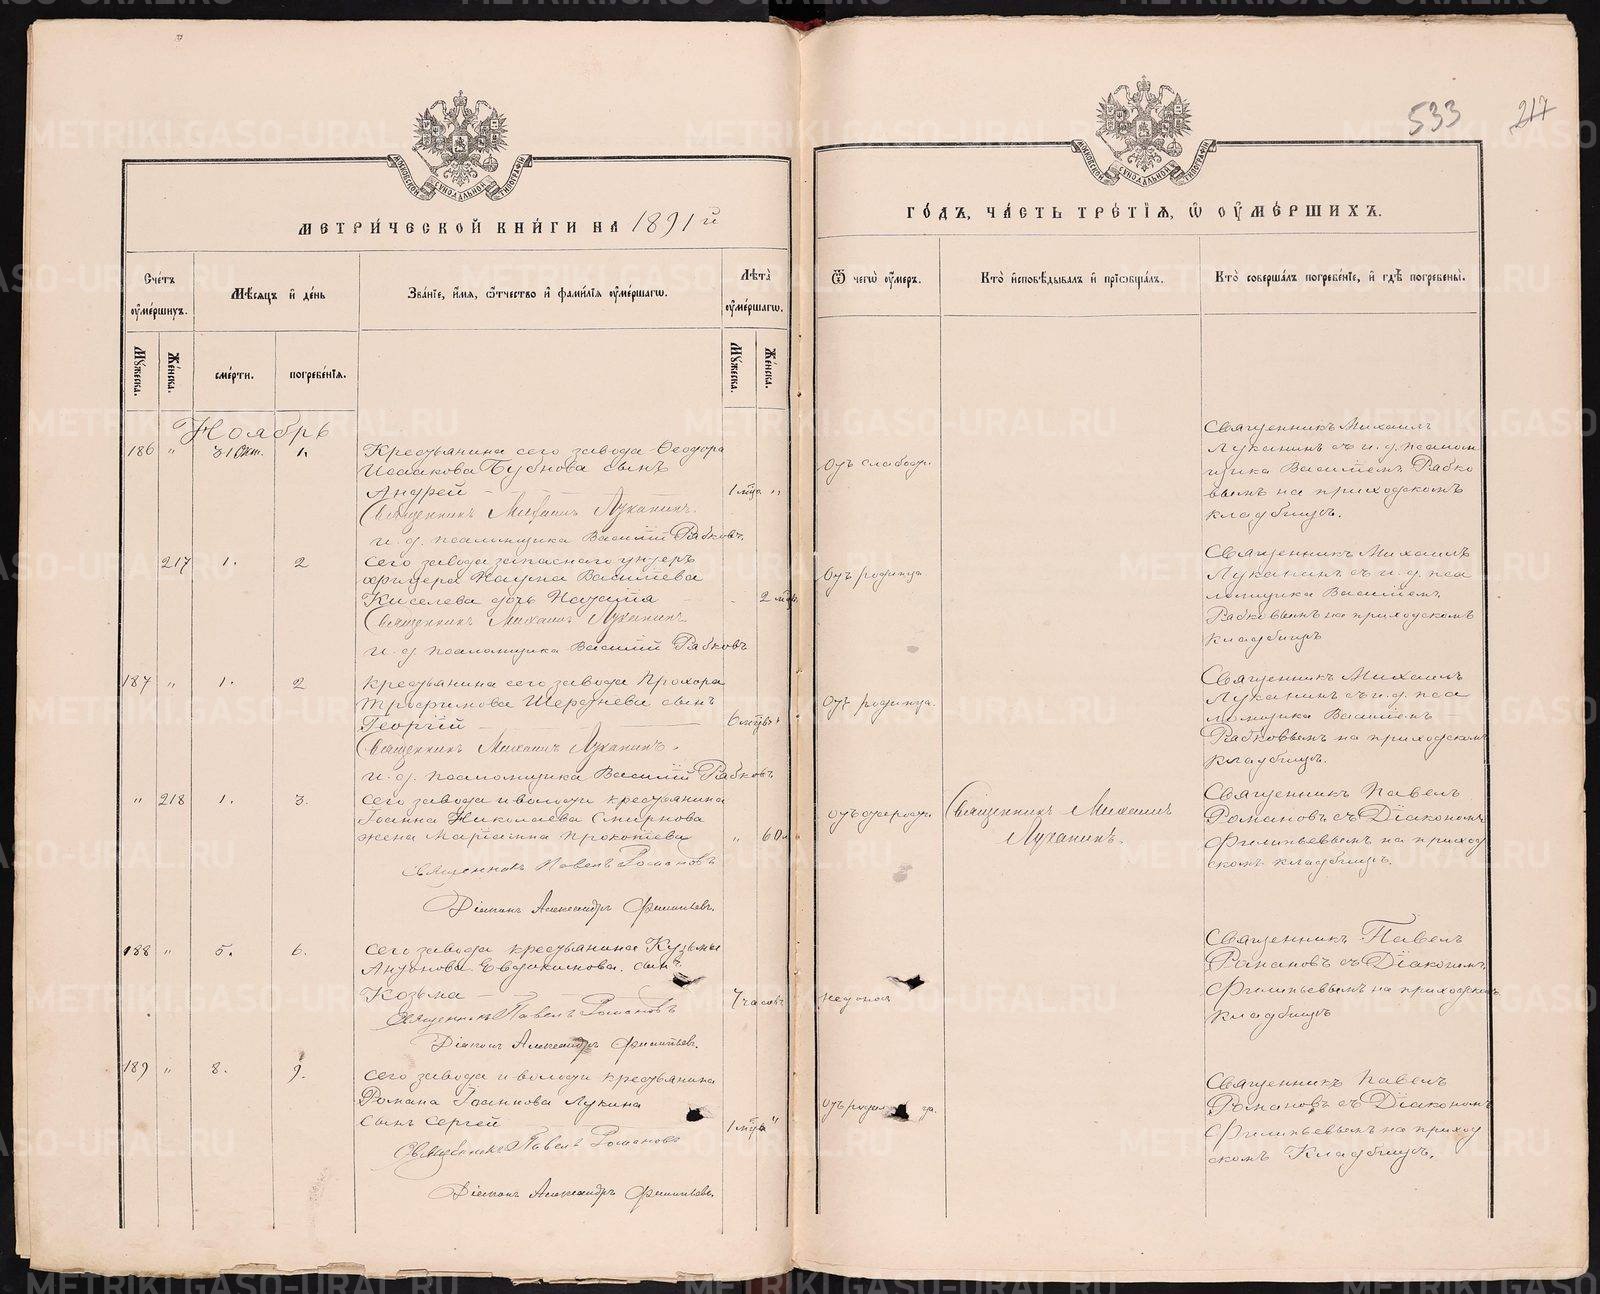 533 217
МЕТРИ́ЧЕСКОЙ КНИ́ГИ НА 1891 й
ГО́ДЪ, ЧА́СТЬ ТРЕ́ТІѦ, Ѡ҆ ОУ҆МЕ́РШИХЪ.
Сче́тъ оу҆ме́ршихъ.
Мѣ́сяцъ и҆ де́нь
Зва́ніе, и҆́мя, ѻ҆́тчество и҆ фами́лія оу҆ме́ршагѡ.
Лѣ́та оу҆ме́ршагѡ.
Ѿ чегѡ̀ оу҆́меръ.
Кто̀ и҆сповѣ́дывалъ и҆ прїѡбща́лъ.
Кто̀ соверша́лъ погребе́нїе, и҆ гдѣ̀ погребены̀.
Му́жеска.
Же́нска.
сме́рти.
погребе́нїя.
Му́жеска.
Же́нска.
Ноябрь
186 " 31 Окт. 1.
Крестьянина сего завода Ѳеодора
Исаакова Бубнова сынъ
Андрей 1 мѣс. "
Священникъ Михаилъ Луканинъ.
и. д. псаломщика Василій Рабковъ.
Отъ слабост.
Священникъ Михаилъ
Луканинъ съ и. д. псалом
щика Василіемъ Рабко
вымъ на приходскомъ
кладбищѣ.
217 1. 2
Сего завода запаснаго унтеръ
офицера Наума Василіева
Киселева дочь 2 мѣс.
Священникъ Михаилъ Луканинъ
и. д. псаломщика Василій Рабковъ
Отъ родимца
Священникъ Михаилъ
Луканинъ съ и. д. пса
ломщика Василіемъ
Рабковымъ на приходскомъ
кладбищѣ
187 " 1. 2
крестьянина сего завода Прохора
Трофимова сынъ
Георгій 6 мѣсяц.
Священникъ Михаилъ Луканинъ.
и. д. псаломщика Василій Рабковъ
Отъ родимца.
Священникъ Михаилъ
Луканинъ съ и. д. пса
ломщика Василіемъ
Рабковымъ на приходскомъ
кладбищѣ.
" 218 1. 3.
сего завода и волости крестьянина
Іоанна Николаева Смирнова
жена Маріамна Прокопіева " 60 л
Священникъ Павелъ Романовъ
Діаконъ Александръ Филипьевъ.
Священникъ Михаилъ
Луканинъ.
Священникъ Павелъ
Романовъ съ Діакономъ
Филипьевымъ на приход
скомъ кладбищѣ.
188 " 5. 6.
сего завода крестьянина Кузьмы
Антонова Евдокимова. сынъ
Козьма 7 часовъ
Священникъ Павелъ Романовъ
Діаконъ Александръ Филипьевъ.
недонос
Священникъ Павелъ
Романовъ съ Діакономъ
Филипьевымъ на приходском
кладбищѣ
189 " 8. 9.
сего завода и волости крестьянина
Романа Іоаннова Лукина
сынъ Сергей 1 мѣс. "
Священникъ Павелъ Романовъ
Діаконъ Александръ Филипьевъ.
Священникъ Павелъ
Романовъ съ Діакономъ
Филипьевымъ на приход
скомъ Кладбищѣ.